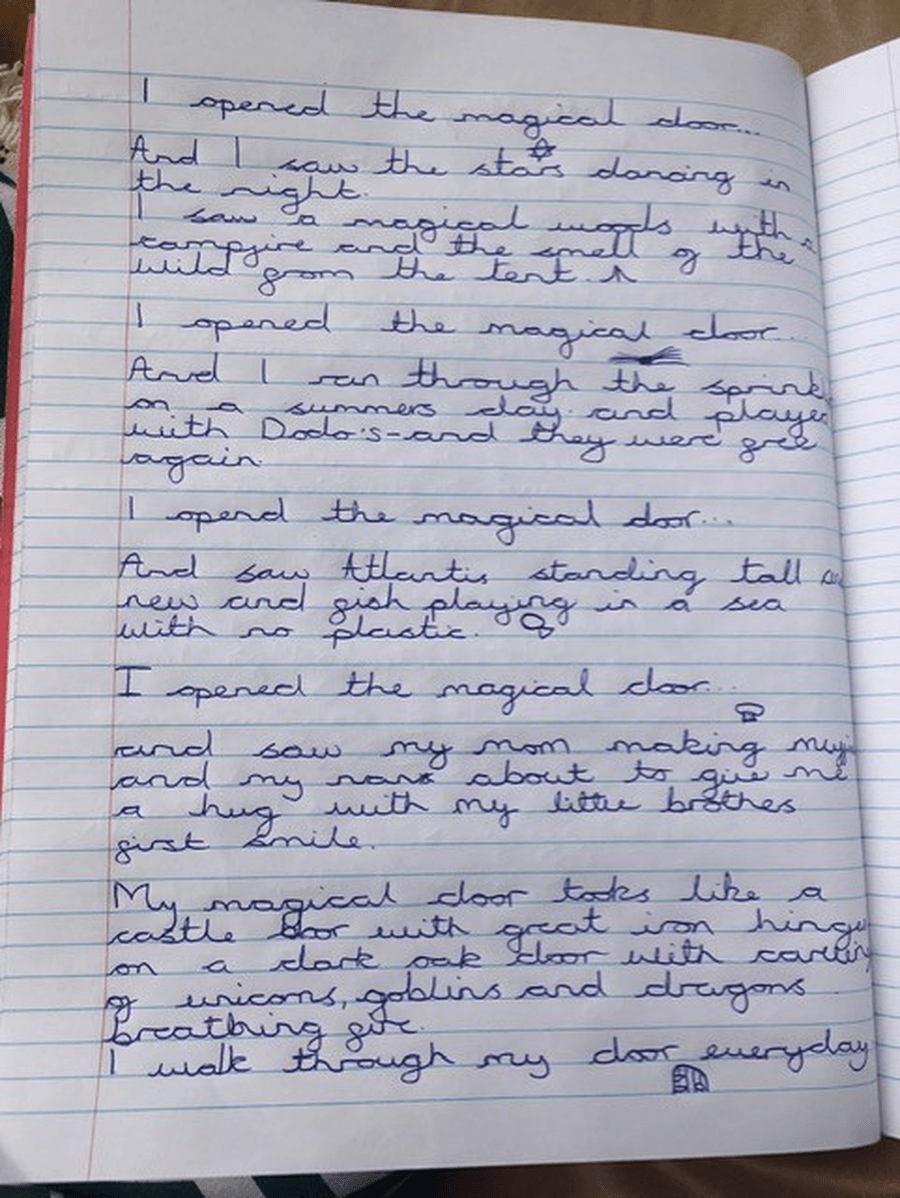 I opened the magical door...
And I saw the stars dancing in
the night.
I saw a magical woods with a
campfire and the smell of the
wild from the tent.
I opened the magical door...
And I ran through the sprinkl
on a summers day and playe
with Dodo's-and they were free
again.
I opend the magical door...
And saw Atlantis standing tall
new and fish playing in a sea
with no plastic.
I opened the magical door...
and saw my mom making
and my nana about to give me
a hug with my little brothes
first smile.
My magical door looks like a
castle door with great iron hinge
on a dark oak door with carving
of unicorns, goblins and dragons
breathing fire.
I walk through my door everyday